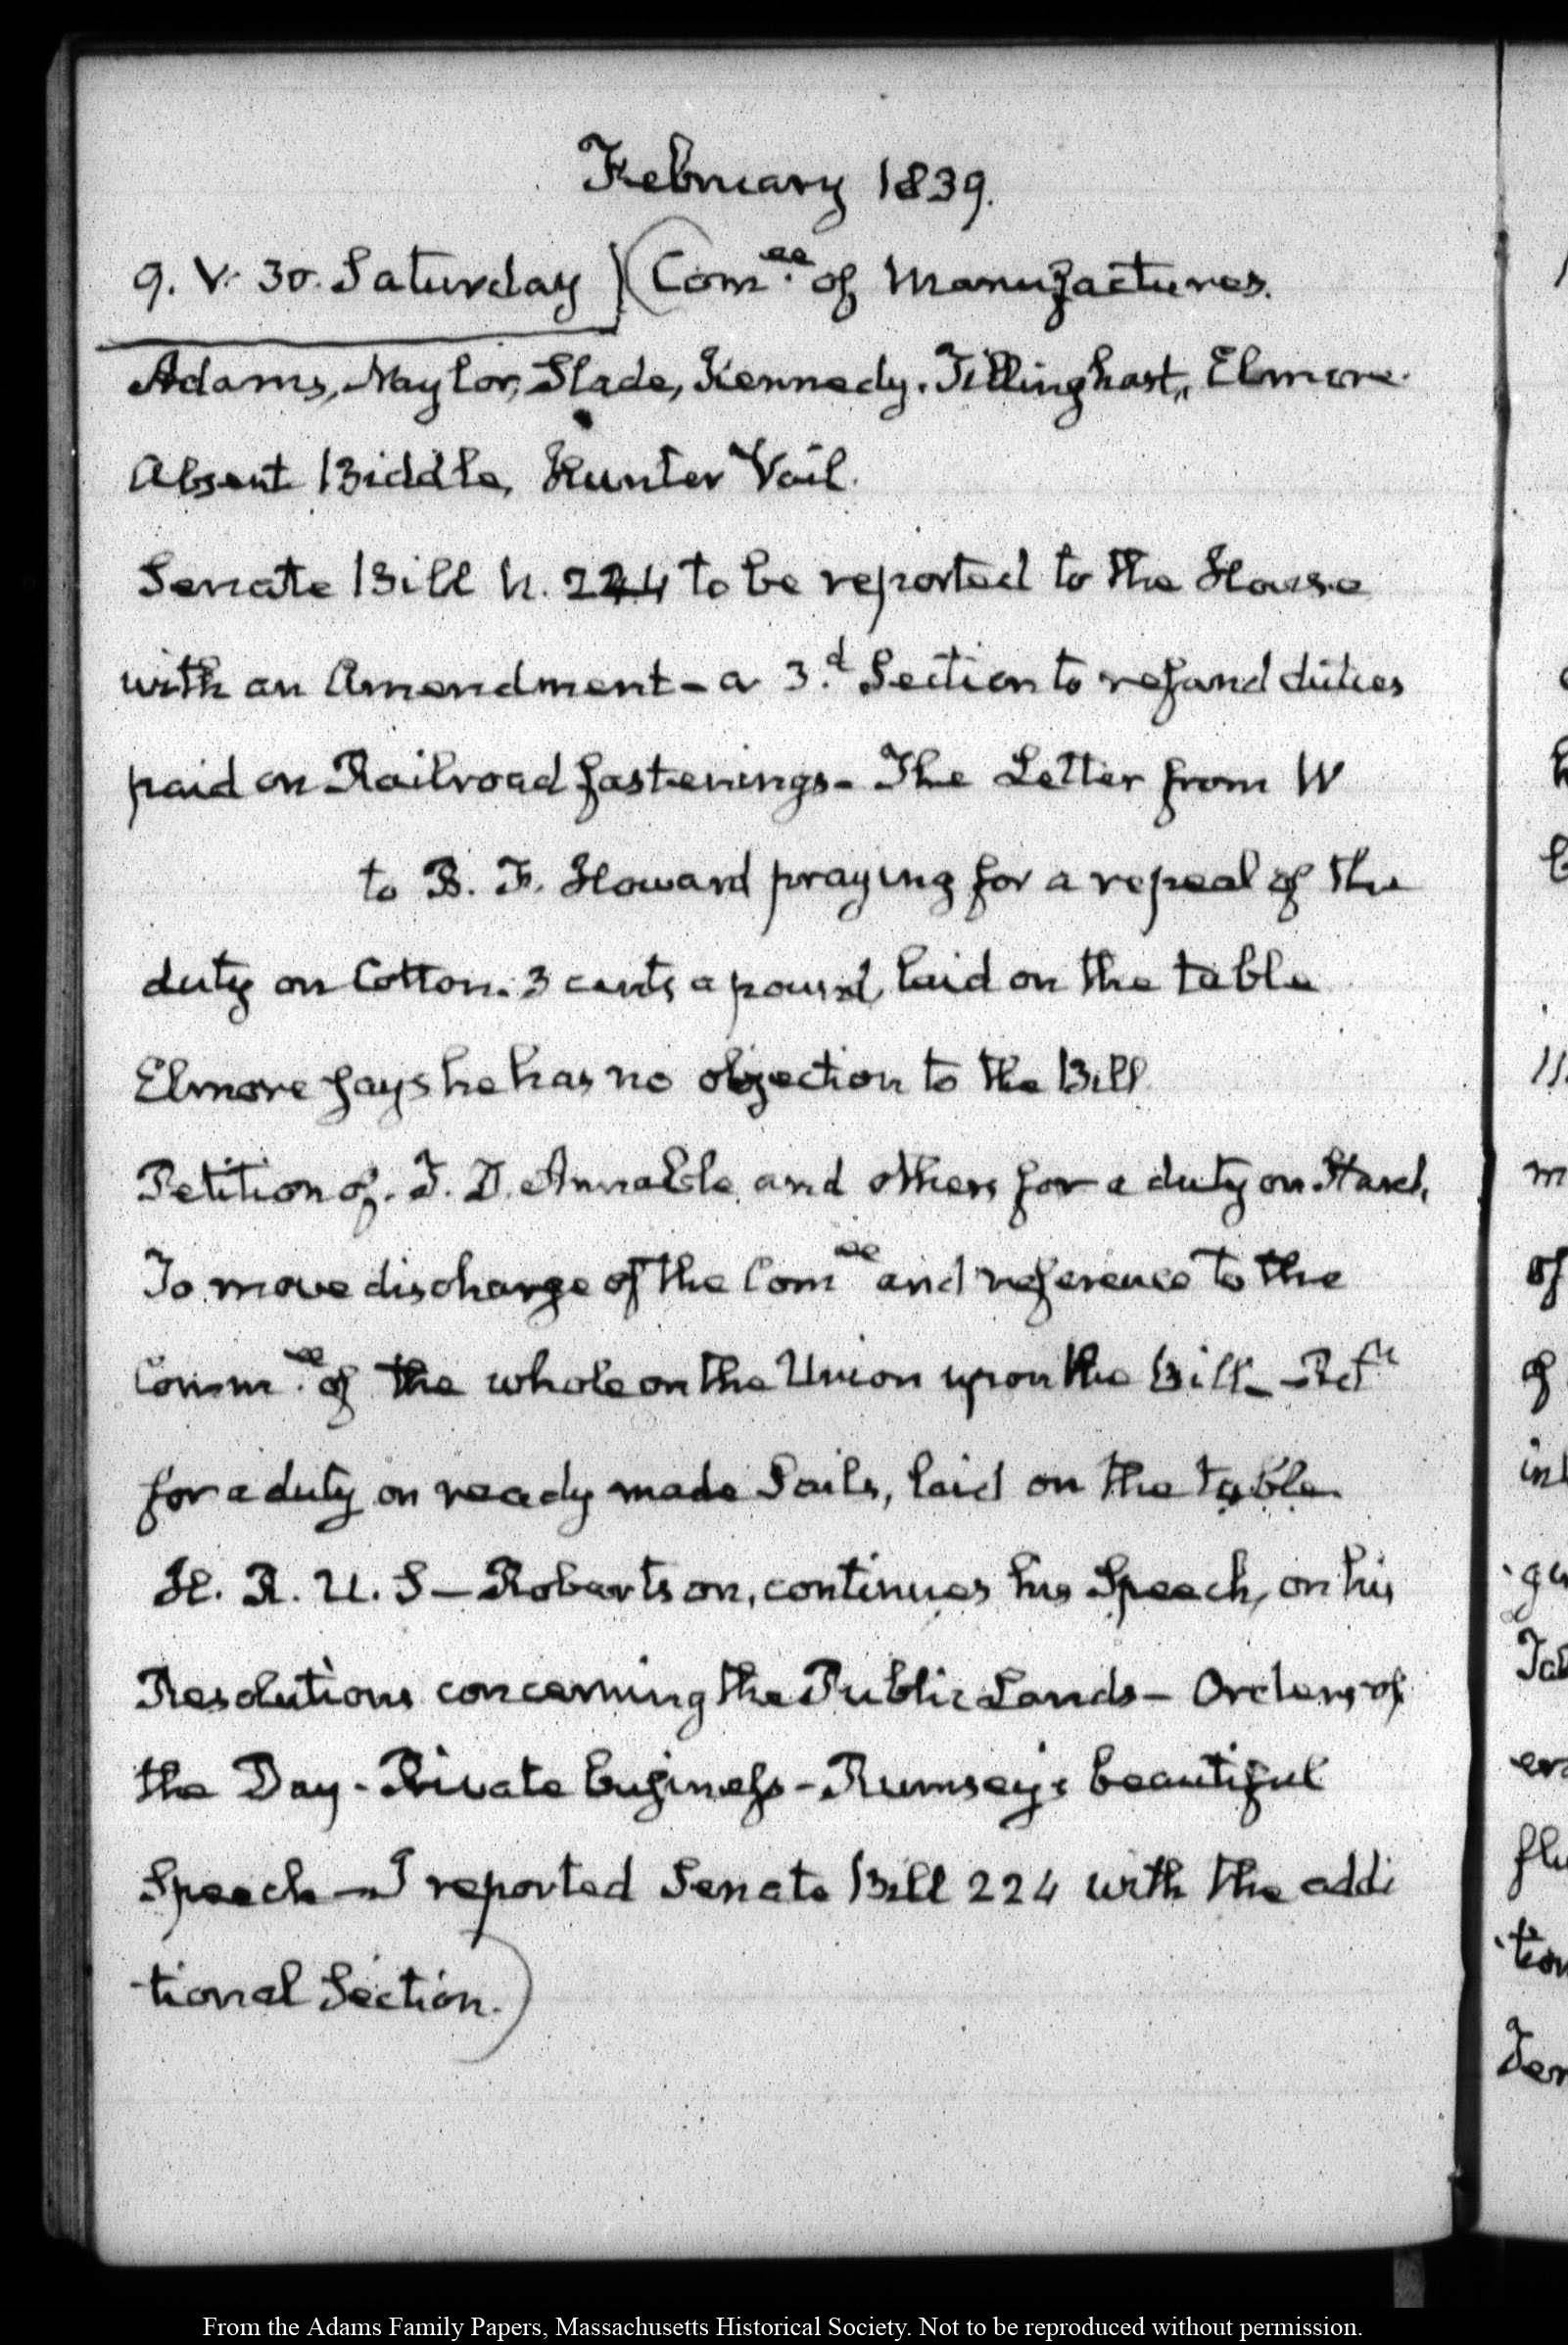 February 1839.
9. V. 30. Saturday (Com.ee of Manufactures.
Adams, Naylor, Slade, Kennedy. Tillinghast, Elmore.
Absent Biddle, Hunter Vail.
Senate Bill N. 224 to be reported to the House
with an Amendment - a 3.d Section to refund duties
paid on Railroad fastenings - The Letter from W
to B. F. Howard praying for a repeal of the
duty on Cotton. 3 cents a pound, laid on the table
Elmore says he has no objection to the Bill
Petition of. F. D. Annable and others for a duty on Starch,
To move discharge of the Com ee and reference to the
Comm.ee of the whole on the Union upon the Bill -
for a duty on ready made Sails, laid on the table.
H. R. U. S - Robertson, continues his Speech, on his
Resolutions concerning the Public Lands - Orders of
the Day - Private business - Rumsey's beautiful
Speech - I reported Senate Bill 224 with the addi
tional Section.)
From the Adams Family Papers, Massachusetts Historical Society. Not to be reproduced without permission.